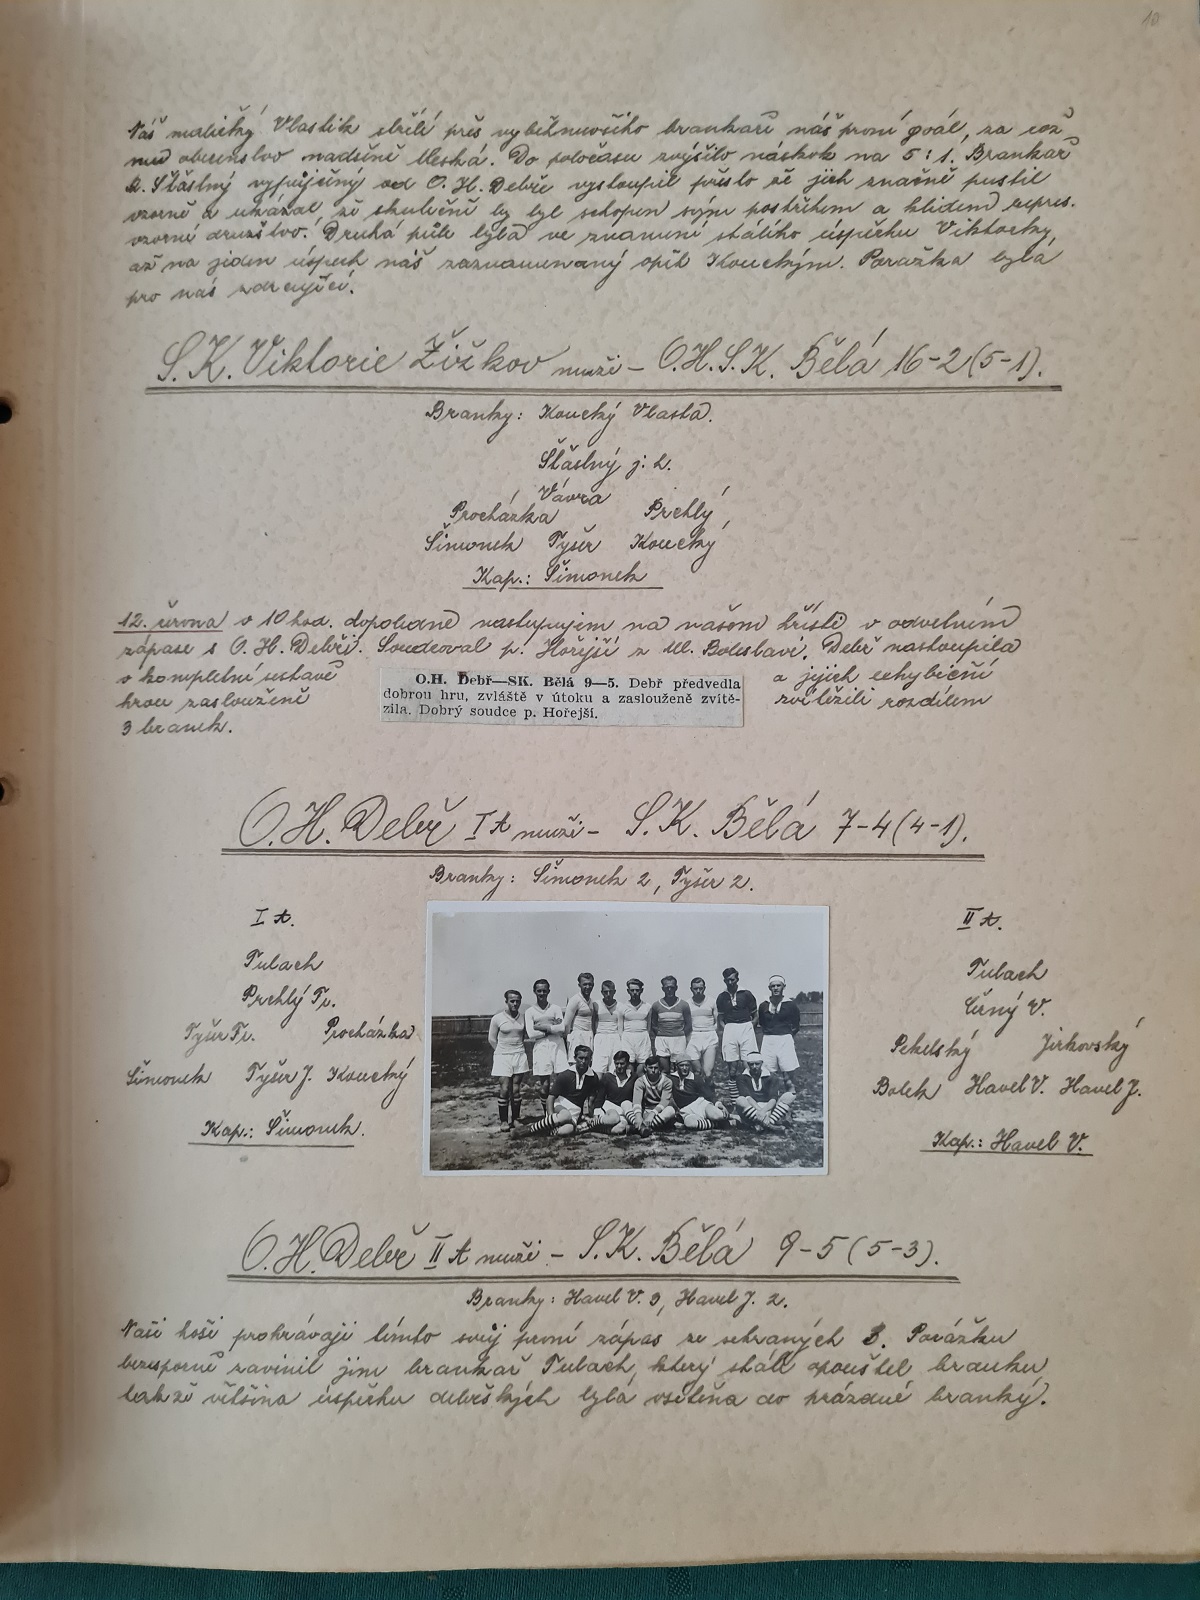 10
Náš maličký Vlastík střílí přes vyběhnuvšího brankaře náš první goál, za což
mu obecenstvo nadšeně tleská. Do poločasu zvýšilo náskok na 5:1. Brankař
R. Šťastný vypůjčený od O.H. Debře vystoupil přesto že jich značně pustil
vzorně a ukázal, že skutečně by byl schopen svým postřehem a klidem repres.
vzorné družstvo. Druhá půle byla ve znamení stálého úspěchu Viktorky,
až na jeden úspěch náš zaznamenaný opět Kouckým. Porážka byla
pro nás zdrcující.
S.K. Viktorie Žižkov muži – O.H.S.K. Bělá 16-2 (5-1).
Branky: Koucký Vlasta.
Šťastný j. h.
Vávra
Procházka Prchlý
Šimonek Tyšer Koucký
Kap.: Šimonek
12. června v 10 hod. dopoledne nastupujem na našem hřišti v odvetném
zápase s O.H. Debří. Soudcoval p. Hořejší z Ml. Boleslavi. Debř nastoupila
v kompletní sestavě a jejich
hrou zaslouženě zvítězili rozdílem
3 branek.
O.H. Debř—SK. Bělá 9—5. Debř předvedla
dobrou hru, zvláště v útoku a zaslouženě zvítě-
zila. Dobrý soudce p. Hořejší.
O.H. Debř I A muži – S.K. Bělá 7-4 (4-1).
Branky: Šimonek 2, Tyšer 2.
I A.
Tulach
Prchlý Fr.
Tyšer Fr. Procházka
Šimonek Tyšer J. Koucký
Kap.: Šimonek.
II A.
Tulach
Černý V.
Pekelský Jirkovský
Bolek Havel V. Havel J.
Kap.: Havel V.
O.H. Debř II A muži – S.K. Bělá 9-5 (5-3).
Branky: Havel V. 3, Havel J. 2.
Naši hoši prohrávají tímto svůj první zápas ze sehraných 3. Porážku
bezesporně zavinil jim brankař Tulach, který stále opouštel branku,
takže většina úspěchu debřských byla vsítěna do prázdné branky.